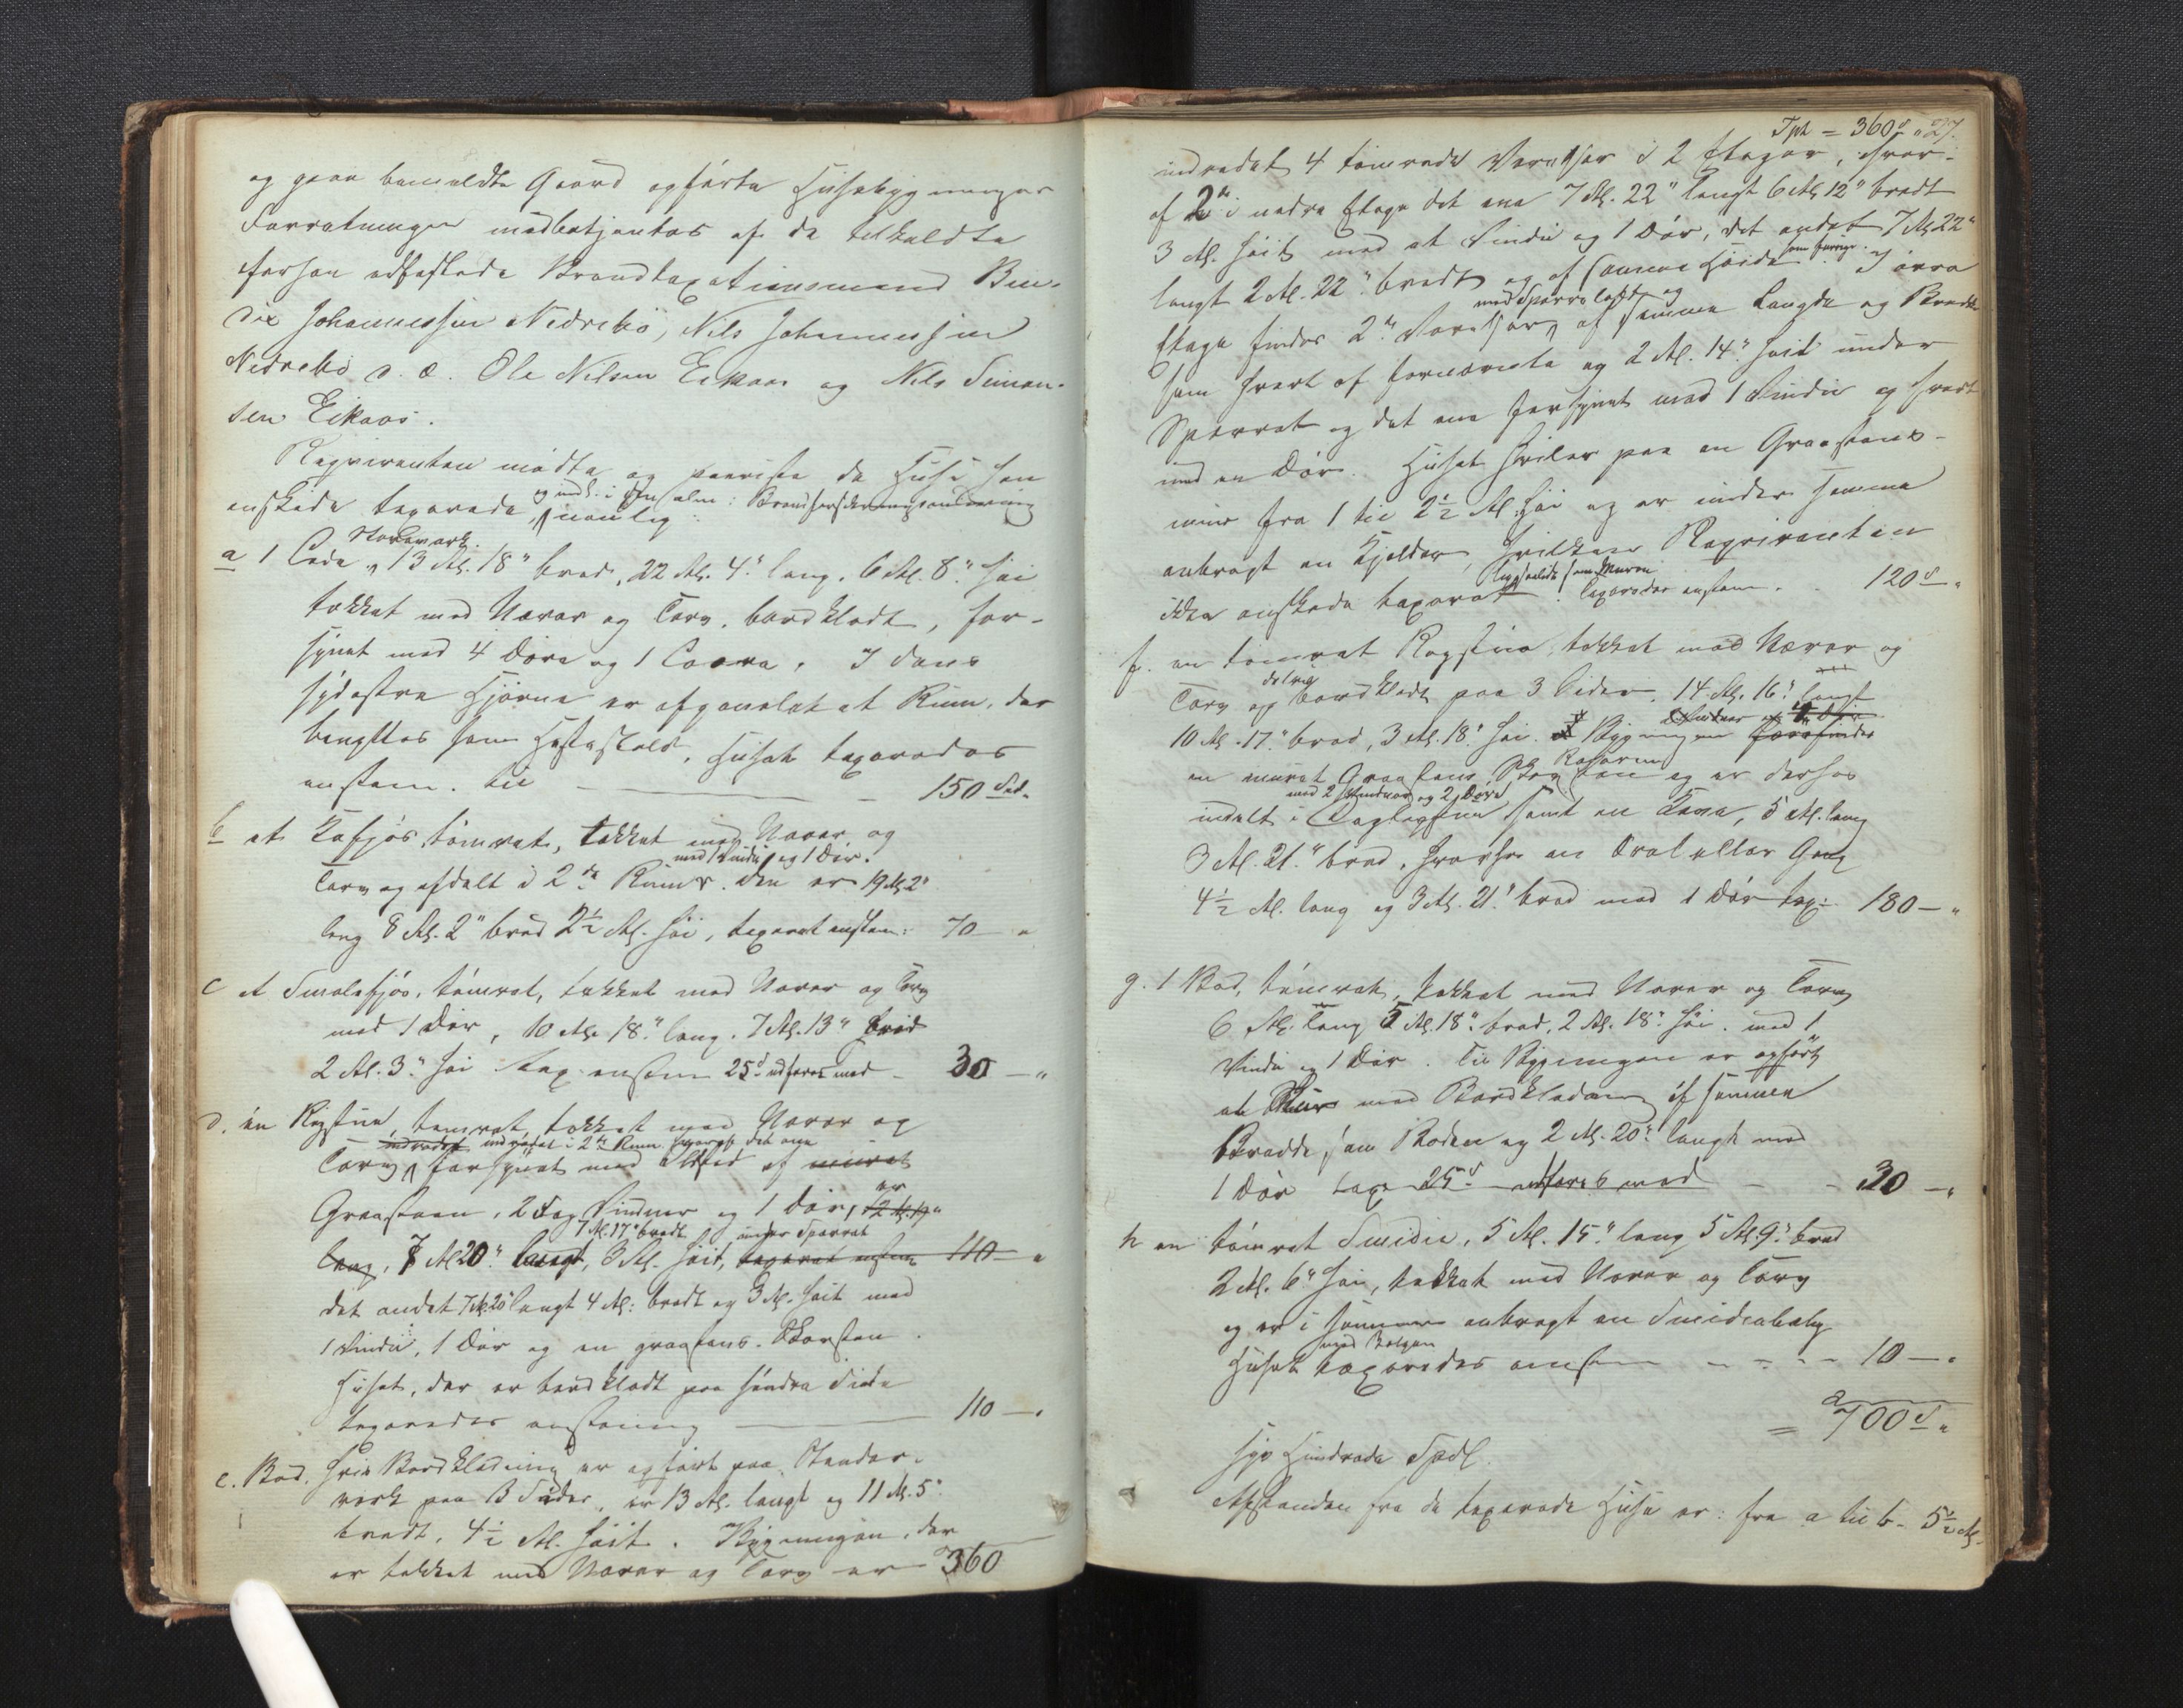 og paa bemeldte Gaard opførte Huusebygninger
Forretningen medbetjentes af de tilkaldte
forhen edfæstede Brandtaxationsmænd Ben-
dix Johannessen Nedrebö, Nils Johannessen
Nedrebö d. æ. Ole Nilsen Eikaas og Nils Simon-
sen Eikaas.
Reqvirenten mödte og paaviste de Huse han
og indl. i Brandforsikrings
önskede taxerede, nemlig:
Storemark.
a 1 Lade, 13 Al. 18" bred, 22 Al. 4" lang, 6 Al. 8" höi
tækket med Næver og Torv, bordklædt, for-
synet med 4 Döre og 1 Laave. I dens
sydöstre Hjörne er afpanelet et Rum, der
benyttes som Hestestald. Huset taxeredes
enstem. til — 150 Spd.
b et Kofjös, tömret, tækket med Næver og
med 1 Vindu og 1 Dör.
Torv og afdelt i 2de Rum. den er 19 Al. 2"
lang 8 Al. 2" bred 2½ Al. höi, taxeret enstem: 70 — "
c et Smalefjös, tömret, tækket med Næver og Torv
med 1 Dör, 10 Al. 18" lang. 7 Al. 13" bred
2 Al. 3" höi tax. enstem 25 d udföres med - 30 — "
d. en Rögstue, tömret, tækket med Næver og
indredet indredet i 2de Rum hvoraf det ene
Torv, forsynet med Ildsted af muret
Graasteen, 2 Fag Vinduer og 1 Dör, er 2 Al. 19"
7 Al. 17" bredt under Sperret
lang, 7 Al 20" langt, 3 Al. höit, taxeret enstem 110 — "
det andet 7 Al. 20" langt 4 Al. bredt og 3 Al. höit med
1 Vindu, 1 Dör og en graasteens Skorsten.
Huset, der er bordklædt paa söndre Side
taxeredes enstemmig — 110 — "
e. Bod, hvis Bordklædning er opfört paa Stander-
værk paa 3 Sider, er 13 Al. langt og 11 Al. 5"
bredt, 4½ Al. höit. Bygningen, der
er tækket med Næver og Torv er 360
Tpt = 360 d " 27.
indredet 4 tömrede Værelser i 2 Etager, hvor-
af 2de i nedre Etage det ene 7 Al. 22" langt 6 Al. 12" bredt
3 Al. höit med et Vindu og 1 Dör, det andet 7 Al. 22"
som forrige.
langt 2 Al. 22" bredt og af samme Höide. I övre
med Sperreloft og
Etage findes 2de Værelser, af samme Længde og Bredde
som hvert af fornævnte og 2 Al. 14" höit under
Sperret og det ene forsynet med 1 Vindu og hvert
med en Dör. Huset hviler paa en Graasteens-
muur fra 1 til 2½ Al. höi og er under samme
anbragt en Kjelder, hvilken Reqvirenten
saavelsom Muren
ikke önskede taxeret. Taxeredes enstem. 120 d "
f. en tömret Rögstue, tækket med Næver og
delvis
Torv og bordklædt paa 3 Sider, 14 Al. 16" lang
Vinduer og 1 Dör
10 Al. 17" bred, 3 Al. 18" höi. Bygningen
en muret Graasteens Skorsten og er derhos
med 2 Vinduer og 2 Döre
indelt i Dagligstue samt en Kove, 5 Al. lang
3 Al. 21" bred, hvorhos en Sval eller Gang
4½ Al. lang og 3 Al. 21" bred med 1 Dör tax: 180 — "
g. 1 Bod, tömret, tækket med Næver og Torv
6 Al. lang 5 Al. 18" bred, 2 Al. 18" höi. med 1
Vindu og 1 Dör. Til Bygningen er opfört
et Skur med Bordklædning af samme
Bredde som Boden og 2 Al. 20" langt med
1 Dör taxe 25 d udföres med — 30 — "
h en tömret Smidie, 5 Al. 15" lang 5 Al. 9" bred
2 Al. 6" höi, tækket med Næver og Torv
og er i samme anbragt en Smidiebælg
med Bælgen
Huset taxeredes enstem — 10 — "
= 700 d "
Syv Hundrede Spdl.
Afstanden fra de taxerede Huse er: fra a til b. 5½ Al.